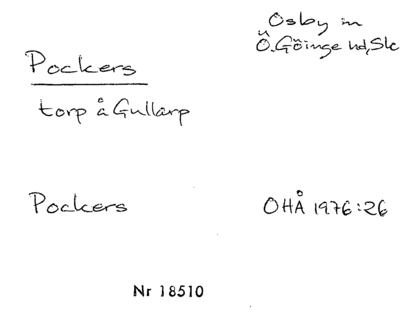 Osby sn
Ö.Göinge hd, Sk
Pockers
torp å Gullarp
Pockers
OHÅ 1976:26
Nr 18510